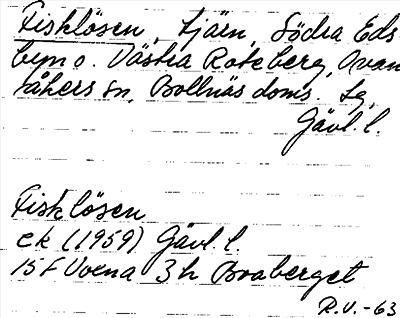 Fisklösen, tjärn, Södra Eds-
byn o. Västra Roteberg, Ovan-
åkers sn, Bollnäs doms. lg,
Gävl. l.
Fisklösen
ek (1959) Gävl. l.
15 F Voxna 3h Braberget
R.V. -63